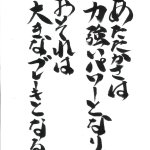 あたたかさは
力強いパワーとなり
おそれは
大きなブレーキとなる